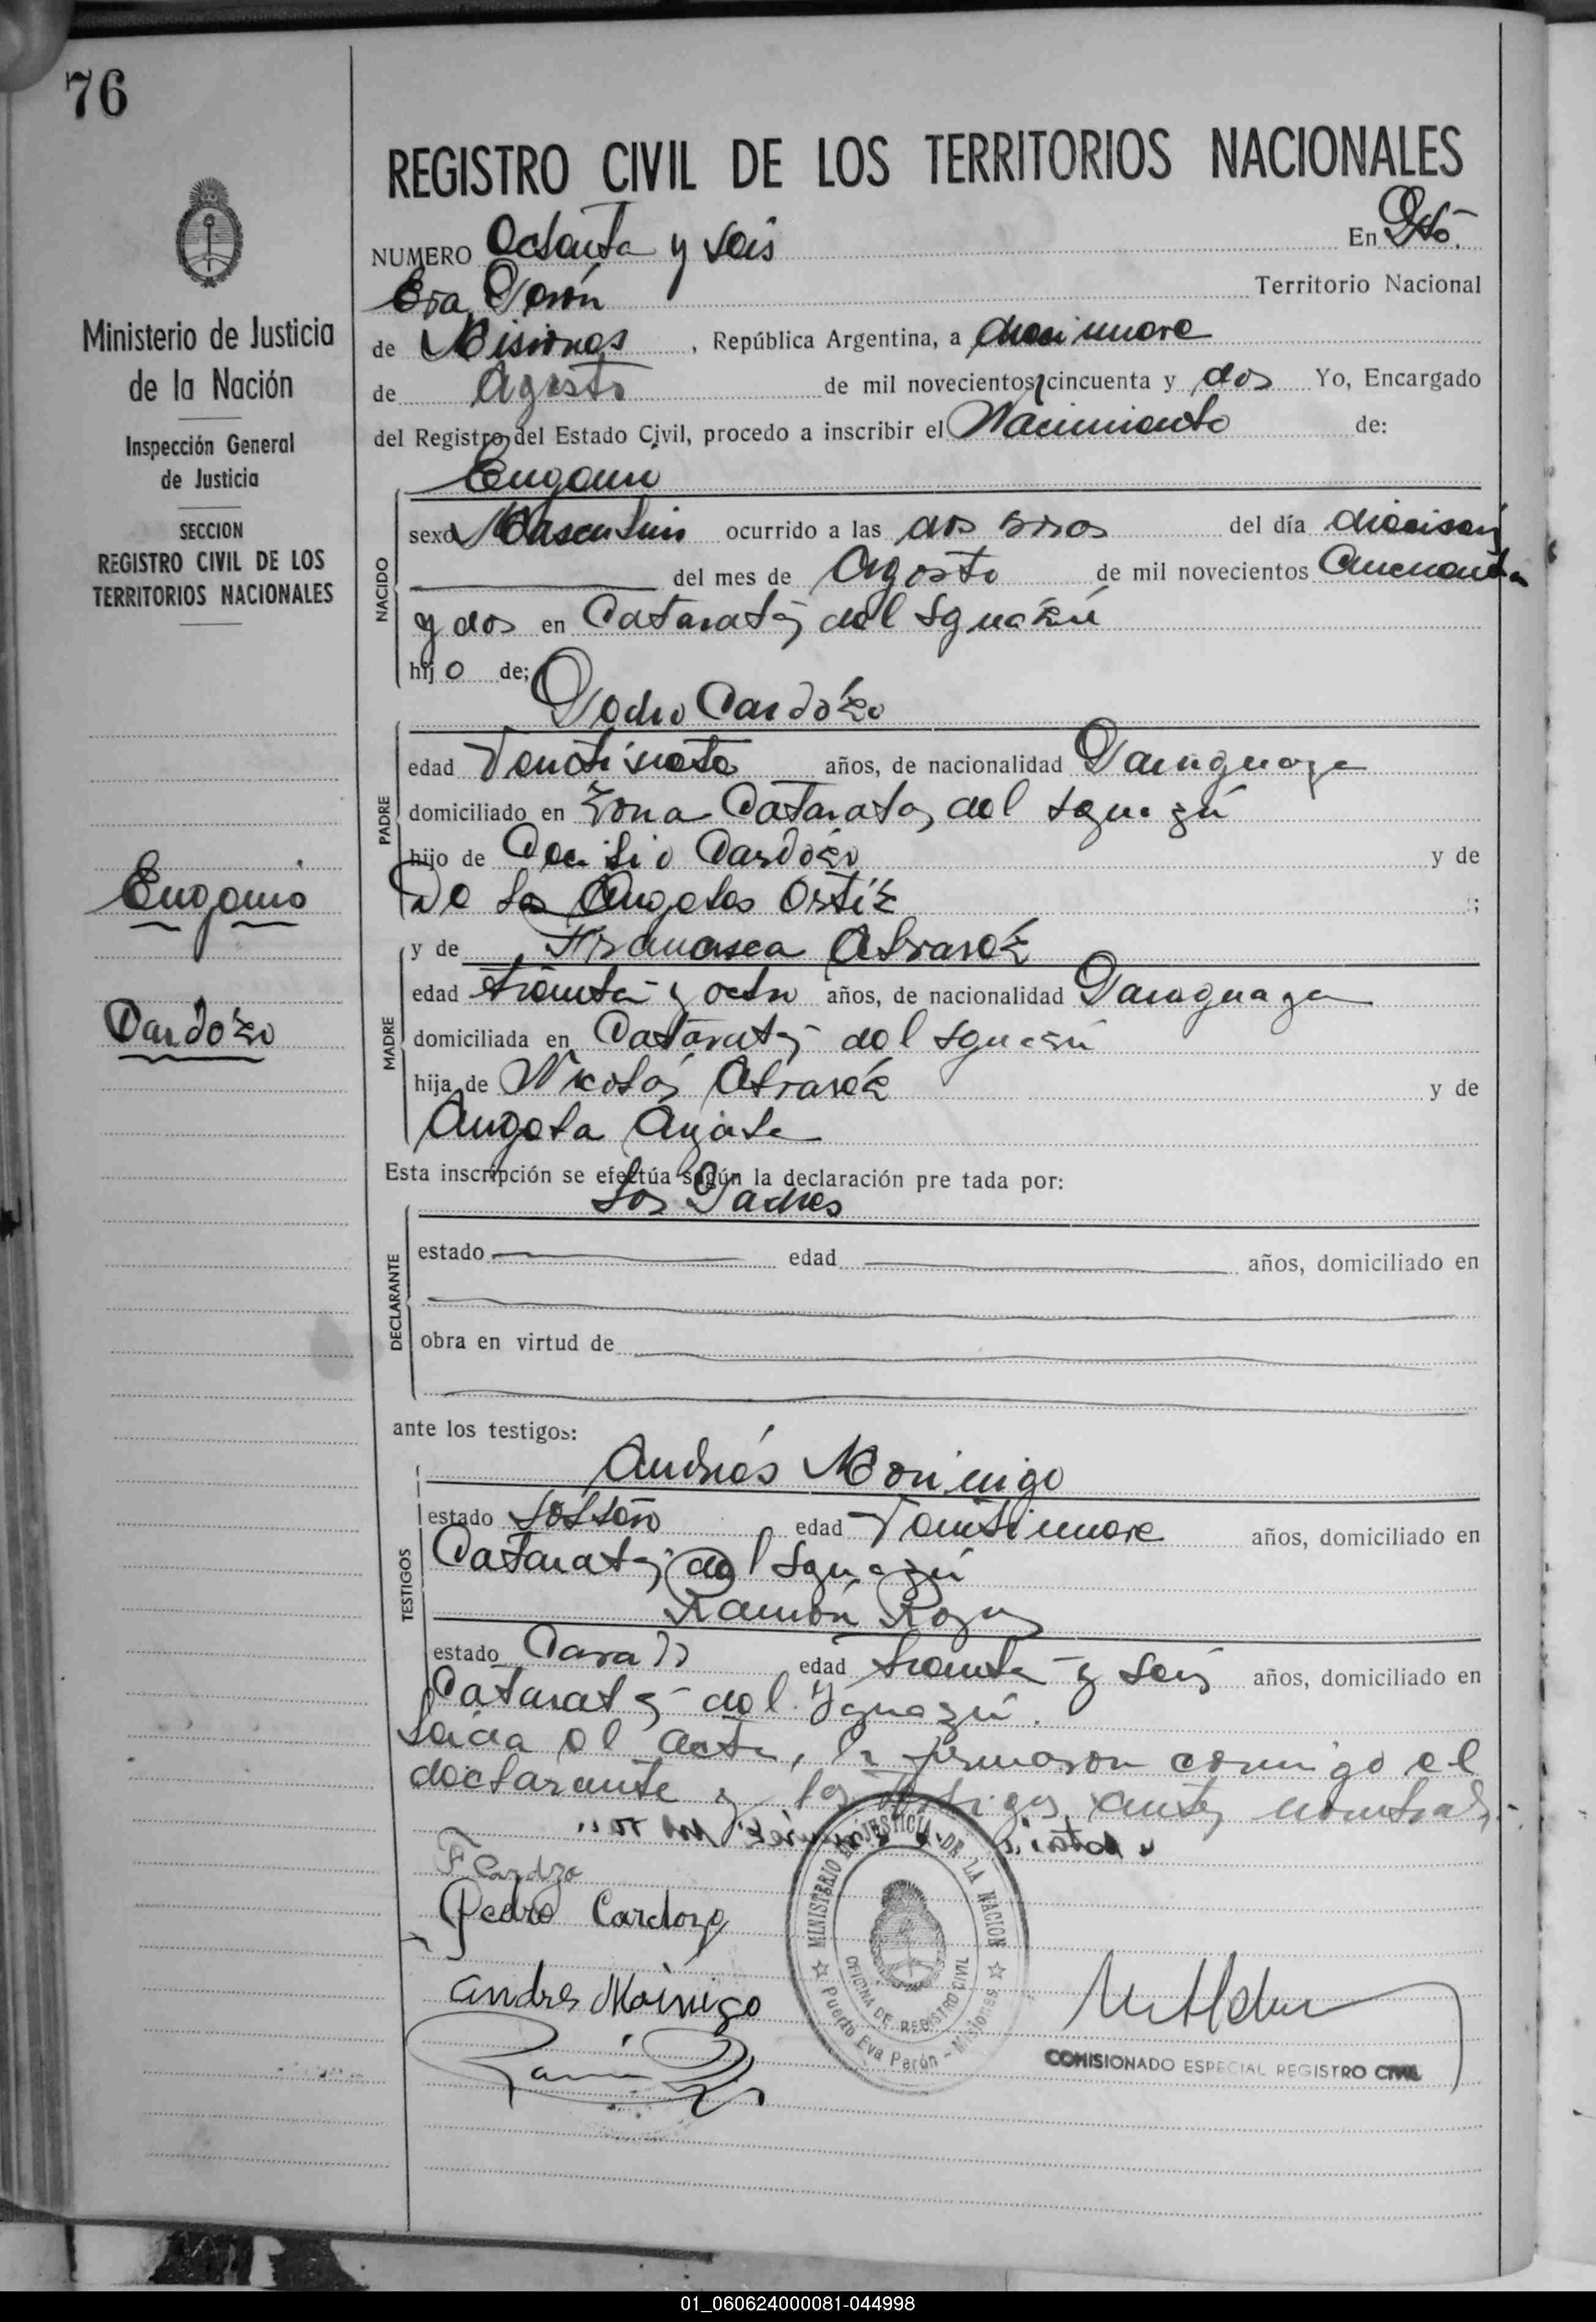 76
REGISTRO CIVIL DE LOS TERRITORIOS NACIONALES
NUMERO Octenta y seis En Pto.
Eva Perón Territorio Nacional
de Misiones, República Argentina, a diecinueve
de Agosto de mil novecientos cincuenta y dos Yo, Encargado
del Registro del Estado Civil, procedo a inscribir el Nacimiento de:
Eugenio
NACIDO
sexo Masculino ocurrido a las dos horas del día dieciseis
del mes de Agosto de mil novecientos Cincuenta
y dos en Cataratas del Iguazú
hijo de;
Pedro Cardózo
PADRE
edad Veintisiete años, de nacionalidad Paraguaya
domiciliado en Zona Cataratas del Iguazú
hijo de Cardózo y de
De los Angeles Ortíz ;
MADRE
y de Francisca Alvaréz
edad treinta y ocho años, de nacionalidad Paraguaya
domiciliada en Cataratas del Iguazú
hija de Nicolás Alvaréz y de
Angela
Esta inscripción se efectúa según la declaración pre tada por:
Los Padres
DECLARANTE
estado edad años, domiciliado en
obra en virtud de
ante los testigos:
TESTIGOS
Andrés Morinigo
estado Soltero edad Veintinueve años, domiciliado en
Cataratas del Iguazú
Ramón Rojas
estado Casado edad treinta y seis años, domiciliado en
Cataratas del Iguazú.
Leída el acta, la firmaron conmigo el
declarante y los testigos antes nombrados.
F Cardozo
Pedro Cardozo
Andres Moinigo
MINISTERIO DE JUSTICIA DE LA NACION
OFICINA DE REGISTRO CIVIL
Puerto Eva Perón - Misiones
COMISIONADO ESPECIAL REGISTRO CIVIL
Ministerio de Justicia
de la Nación
Inspección General
de Justicia
SECCION
REGISTRO CIVIL DE LOS
TERRITORIOS NACIONALES
Eugenio
Cardozo
01_060624000081-044998